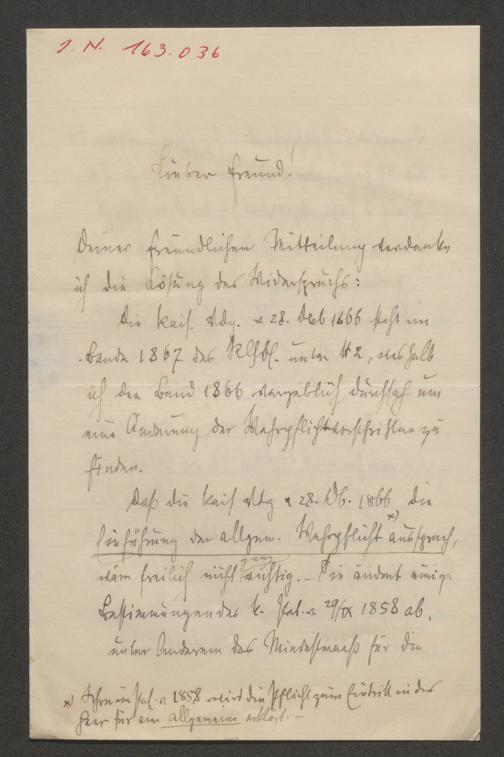 J. N. 163.036
Lieber Freund!
Deiner freundlichen Mitteilung verdanke
ich die Lösung des Widerspruchs:
Die kais. Vdg. v 28. Deb 1866 steht im
Bande 1867 des RGBl. unter № 2, weshalb
ich den Band 1866 vergeblich durchsah um
eine Änderung der Wehrpflichtvorschriften zu
finden.
Daß die kais Vdg v 28. Db. 1866 die
Einführung der allgem. Wehrpflicht *) aussprach,
wäre freilich nicht ganz richtig. – Sie ändert einige
Bestimmungen des k. Pat. v. 29/IX 1858 ab,
unter Anderem das Mindestmaaß für die
*) Schon im Pat. v 1858 wird die Pflicht zum Eintritt in das
Heer für eine allgemeine erklärt. –